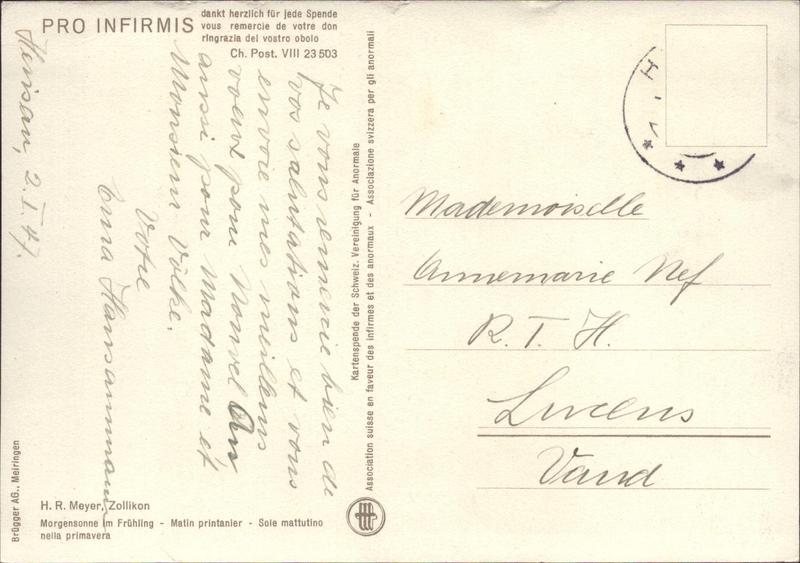 PRO INFIRMIS
dankt herzlich für jede Spende
vous remercie de votre don
ringrazia del vostro obolo
Ch. Post. VIII 23 503
Herisau, 2. I. 47.
Je vous remercie bien de
vos salutations et vous
envoie mes meilleurs
voeux pour Nouvel An
aussi pour Madame et
Monsieur Völke.
Votre
Erna Hansammann
Kartenspende der Schweiz. Vereinigung für Anormale
Association suisse en faveur des infirmes et des anormaux - Associazione svizzera per gli anormali
Mademoiselle
Annemarie Nef
R. T. H.
Lucens
Vaud
Brügger AG., Meiringen
H. R. Meyer, Zollikon
Morgensonne im Frühling - Matin printanier - Sole mattutino
nella primavera